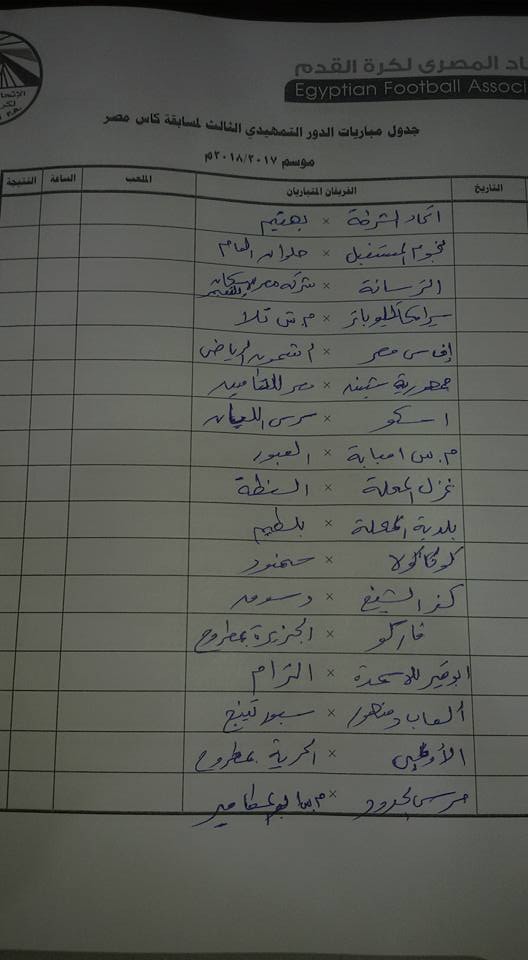 اد المصرى لكرة القدم
Egyptian Football Associ
جدول مباريات الدور التمهيدي الثالث لمسابقة كاس مصر
موسم ٢٠١٨/٢٠١٧م
التاريخ الفريقان المتباريان الملعب الساعة النتيجة
اتحاد الشرطة × بهتيم
نجوم المستقبل × حلوان العام
الترسانة × شركة مصر
سيراميكا كليوباترا × م.ش تلا
إف سى مصر × أشمون الرياضى
جمهورية شبين × مصر للتأمين
اسكو × سرس الليان
م.س امبابة × العبور
غزل المحلة × السنطة
بلدية المحلة × بلطيم
كوكاكولا × سمنود
كفر الشيخ × دسوق
فاركو × الجزيرة بمطروح
ابوقير للاسمدة × الترام
ألعاب دمنهور × سبورتينج
الأوليمبى × الحرية بمطروح
حرس الحدود × م.ش ابو المطامير